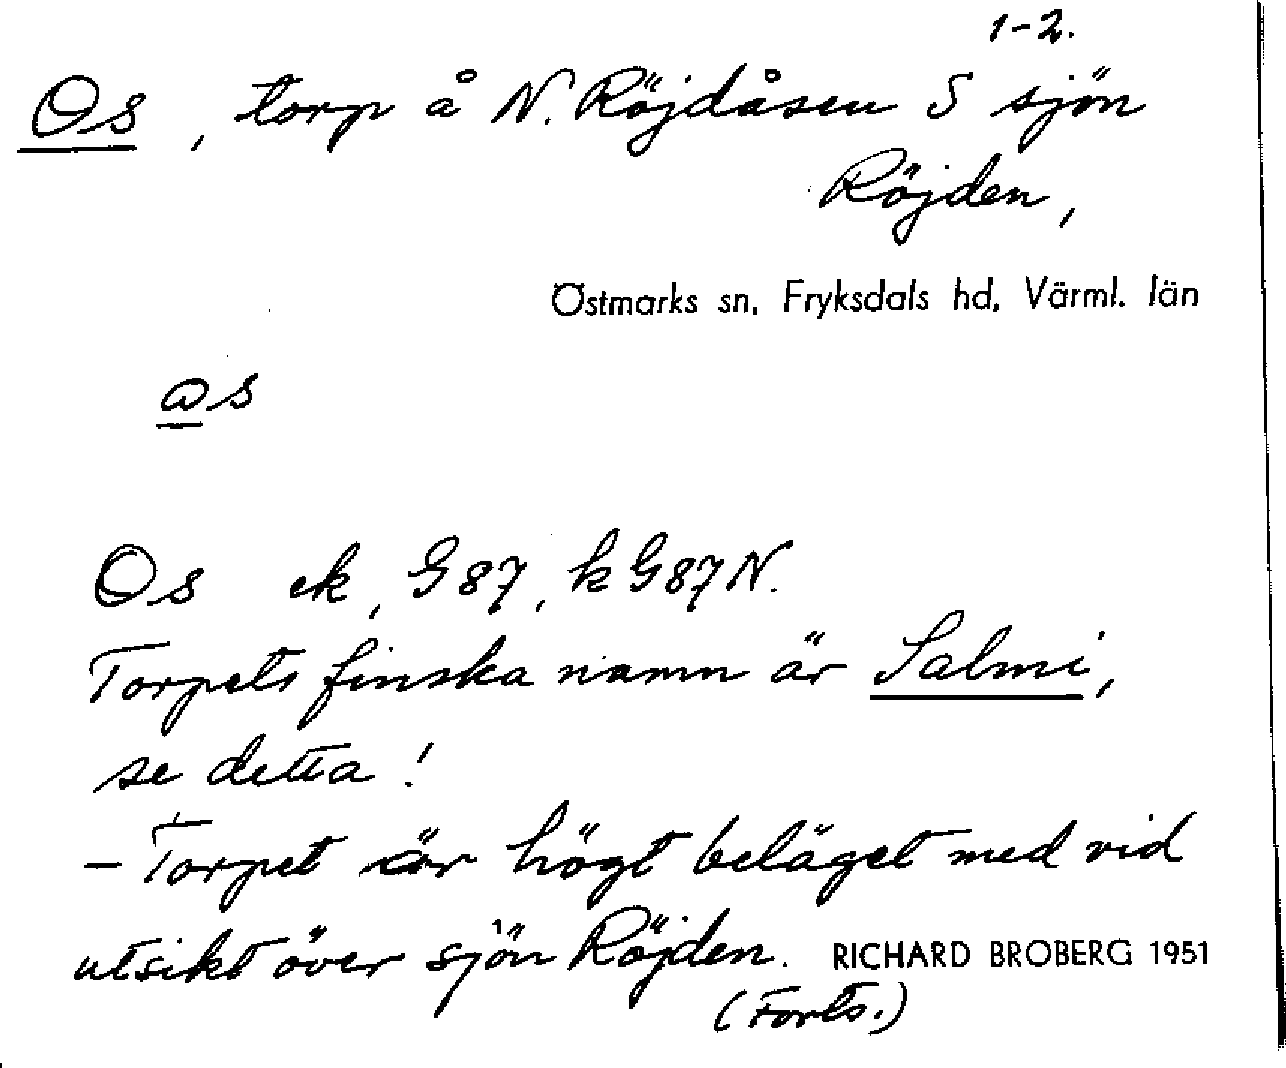 1-2.
Os, torp å N. Röjdåsen S sjön
Röjden,
Östmarks sn, Fryksdals hd, Värml. län
ɷs
Os ek, G87, k G87N.
Torpets finska namn är Salmi,
se detta!
- Torpet är högt beläget med vid
utsikt över sjön Röjden. RICHARD BROBERG 1951
(Forts.)